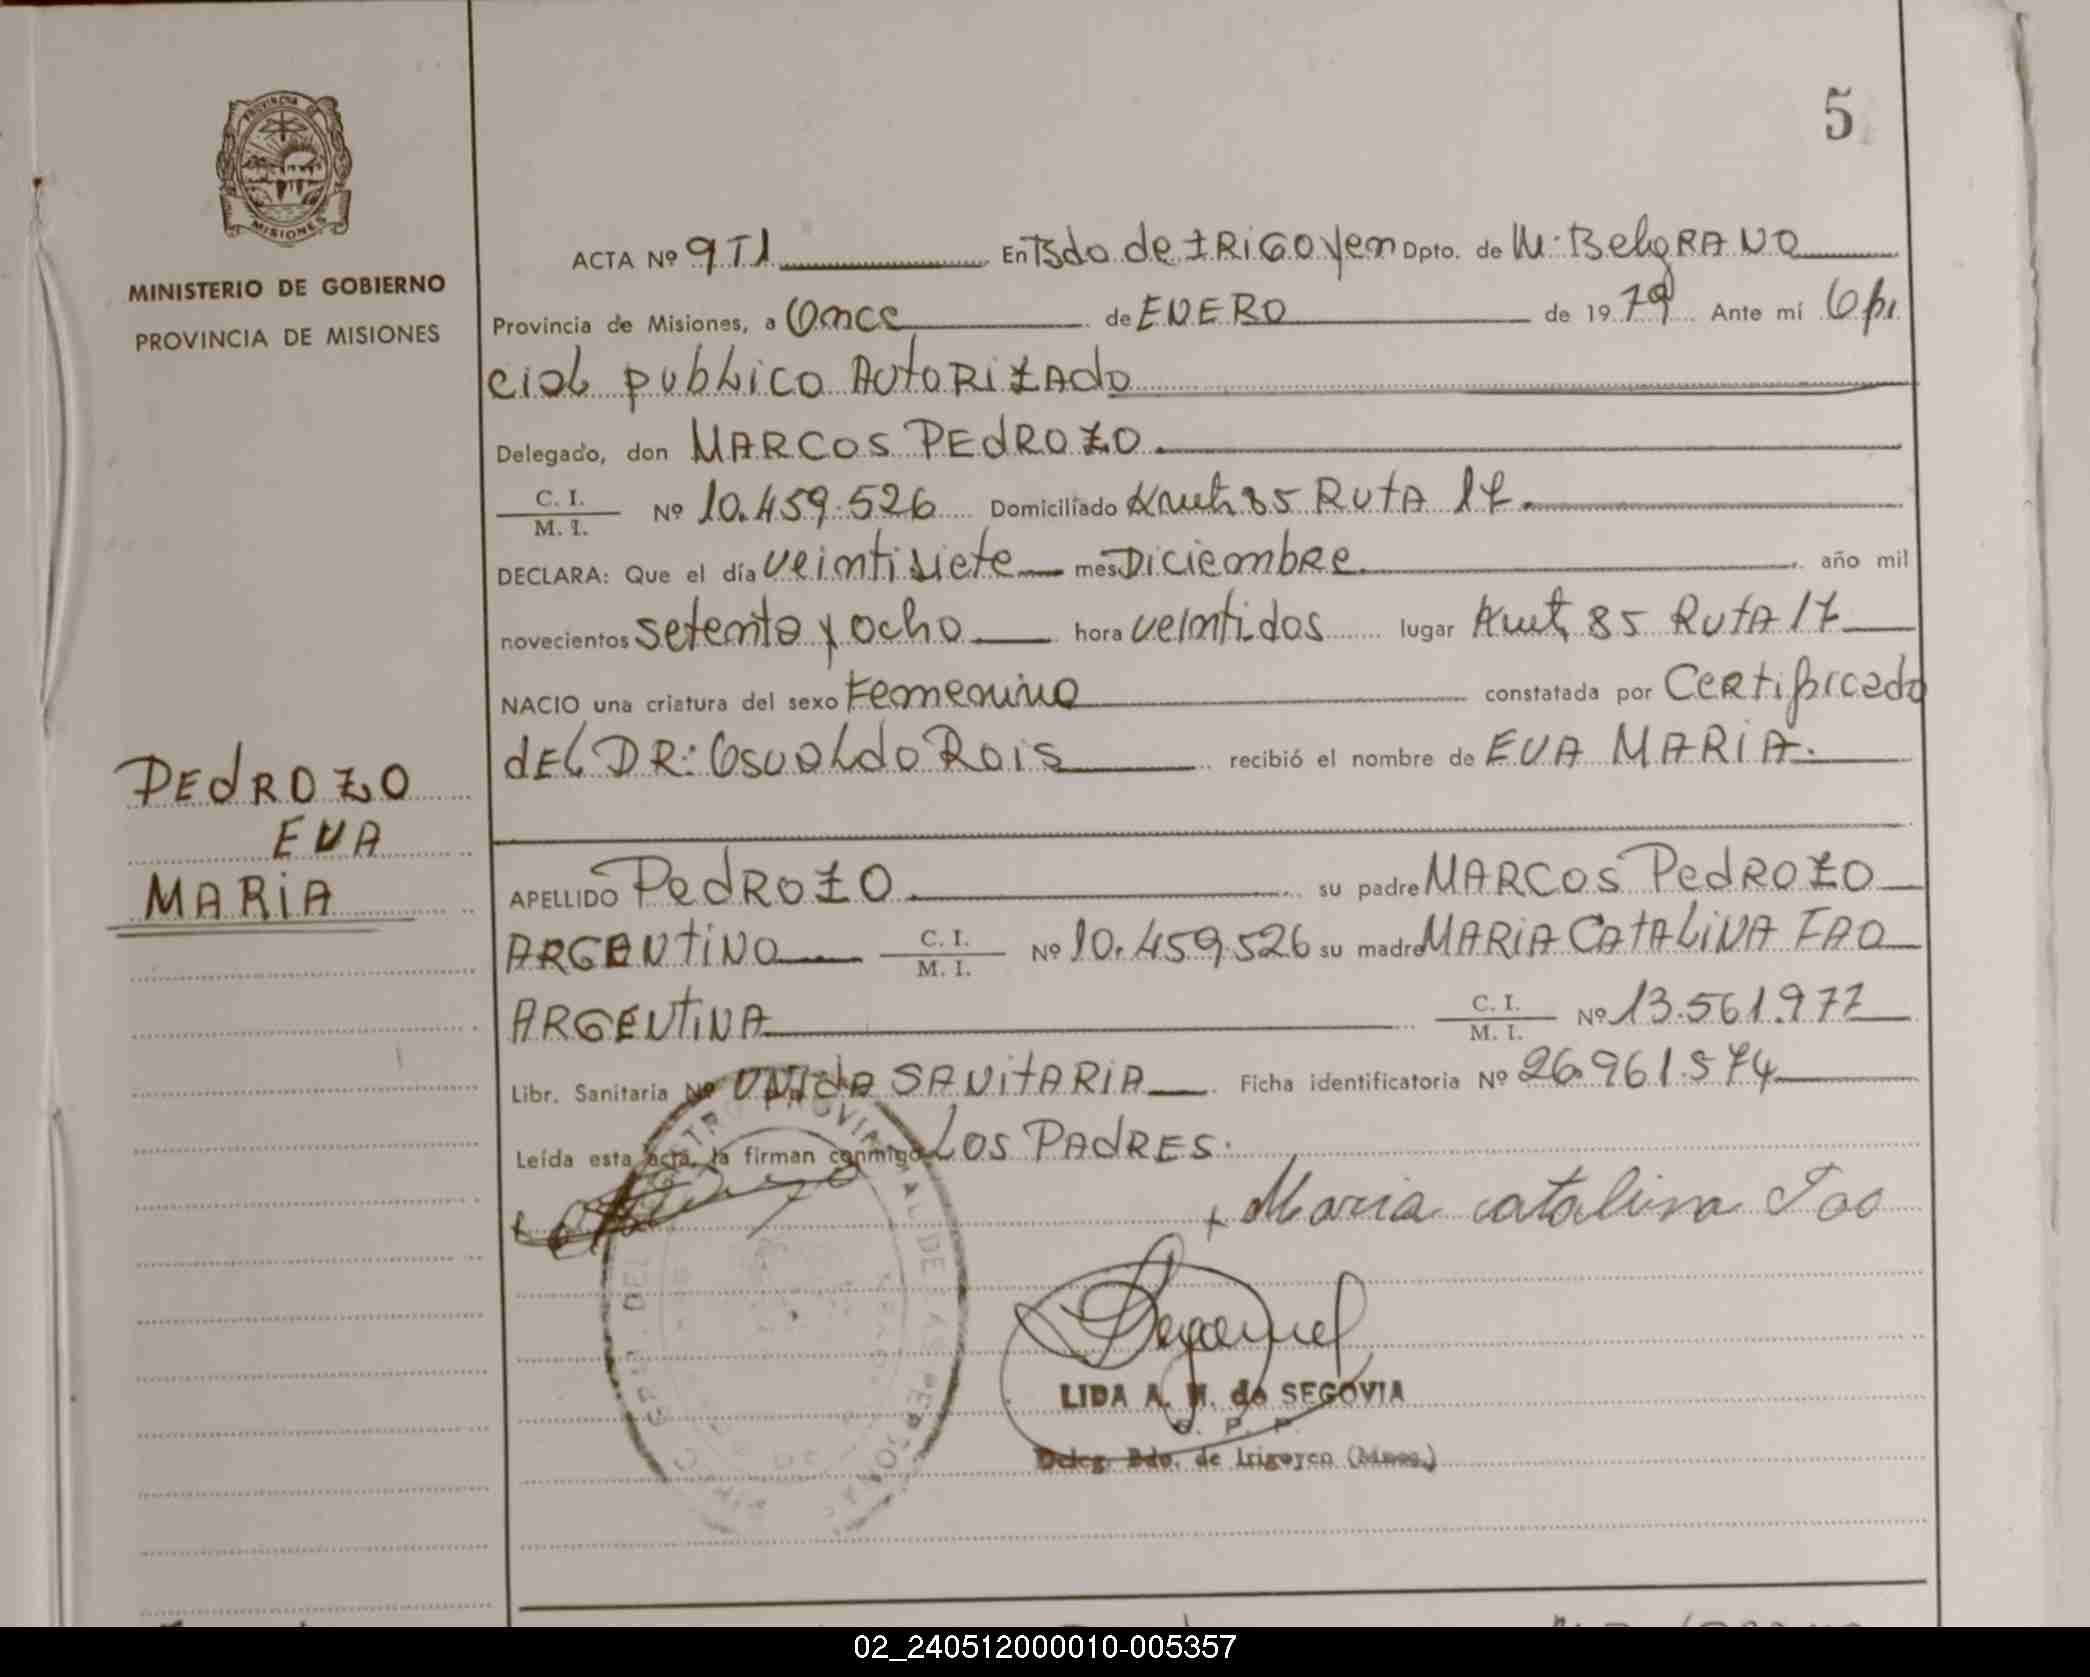 5
PROVINCIA DE
MISIONES
MINISTERIO DE GOBIERNO
PROVINCIA DE MISIONES
ACTA Nº 9T1 En Bdo de IRIGOYen Dpto. de M. BelgRANO
Provincia de Misiones, a Once de ENERO de 1979 Ante mí Ofi
cial publico AutoRiZAdo
Delegado, don MARCOS PEdROZO
C. I.
M. I.
Nº 10.459.526 Domiciliado Kmt 85 RUtA 17
DECLARA: Que el día veintisiete mes Diciembre año mil
novecientos setenta y ocho hora veintidos lugar Kmt 85 RutA 17
NACIO una criatura del sexo Femenino constatada por Certificado
dEL DR: Osvaldo Rois recibió el nombre de EVA MARIA.
PEdROZO
EVA
MARiA
APELLIDO PedROZO su padre MARCOS PedROZO
ARGENtiNO C. I.
M. I.
Nº 10.459.526 su madre MARiA CAtALiNA FAO
ARGENtiNA C. I.
M. I.
Nº 13.561.977
Libr. Sanitaria Nº UNidA SANitARiA Ficha identificatoria Nº 26.961.574
Leída esta acta, la firman conmigo LOS PADRES.
Maria catalina
PROVINCIAL DE LAS PERSONAS
LIDA A. M. de SEGOVIA
O. P. P.
Deleg. Bdo. de Irigoyen (Mnes.)
02_240512000010-005357